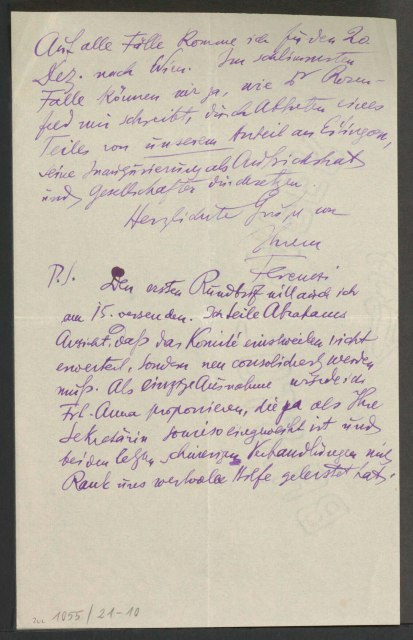 Auf alle Fälle komme ich für den 20
Dez. nach Wien. Im schlimmsten
Falle können wir ja, wie Dr Rosen-
feld mir schreibt, durch Abtreten eines
Teiles von unserem Anteil an Eitingon,
seine Inaugurierung als Aufsichtsrat
und Gesellschafter durchsetzen.
Herzlichste Grüße von
Ihrem
Ferenczi
P.S. Den ersten Rundbrief will auch ich
am 15. versenden. Ich teile Abrahams
Ansicht, daß das Komité einstweilen nicht
erweitert, sondern neu consolidiert werden
muß. Als einzige Ausnahme würde ich
Frl. Anna proponieren, die ja als Ihre
Sekretärin sowieso eingeweiht ist und
bei den letzten schwierigen Verhandlungen mit
Rank uns wertvolle Hilfe geleistet hat.
1055/21-10